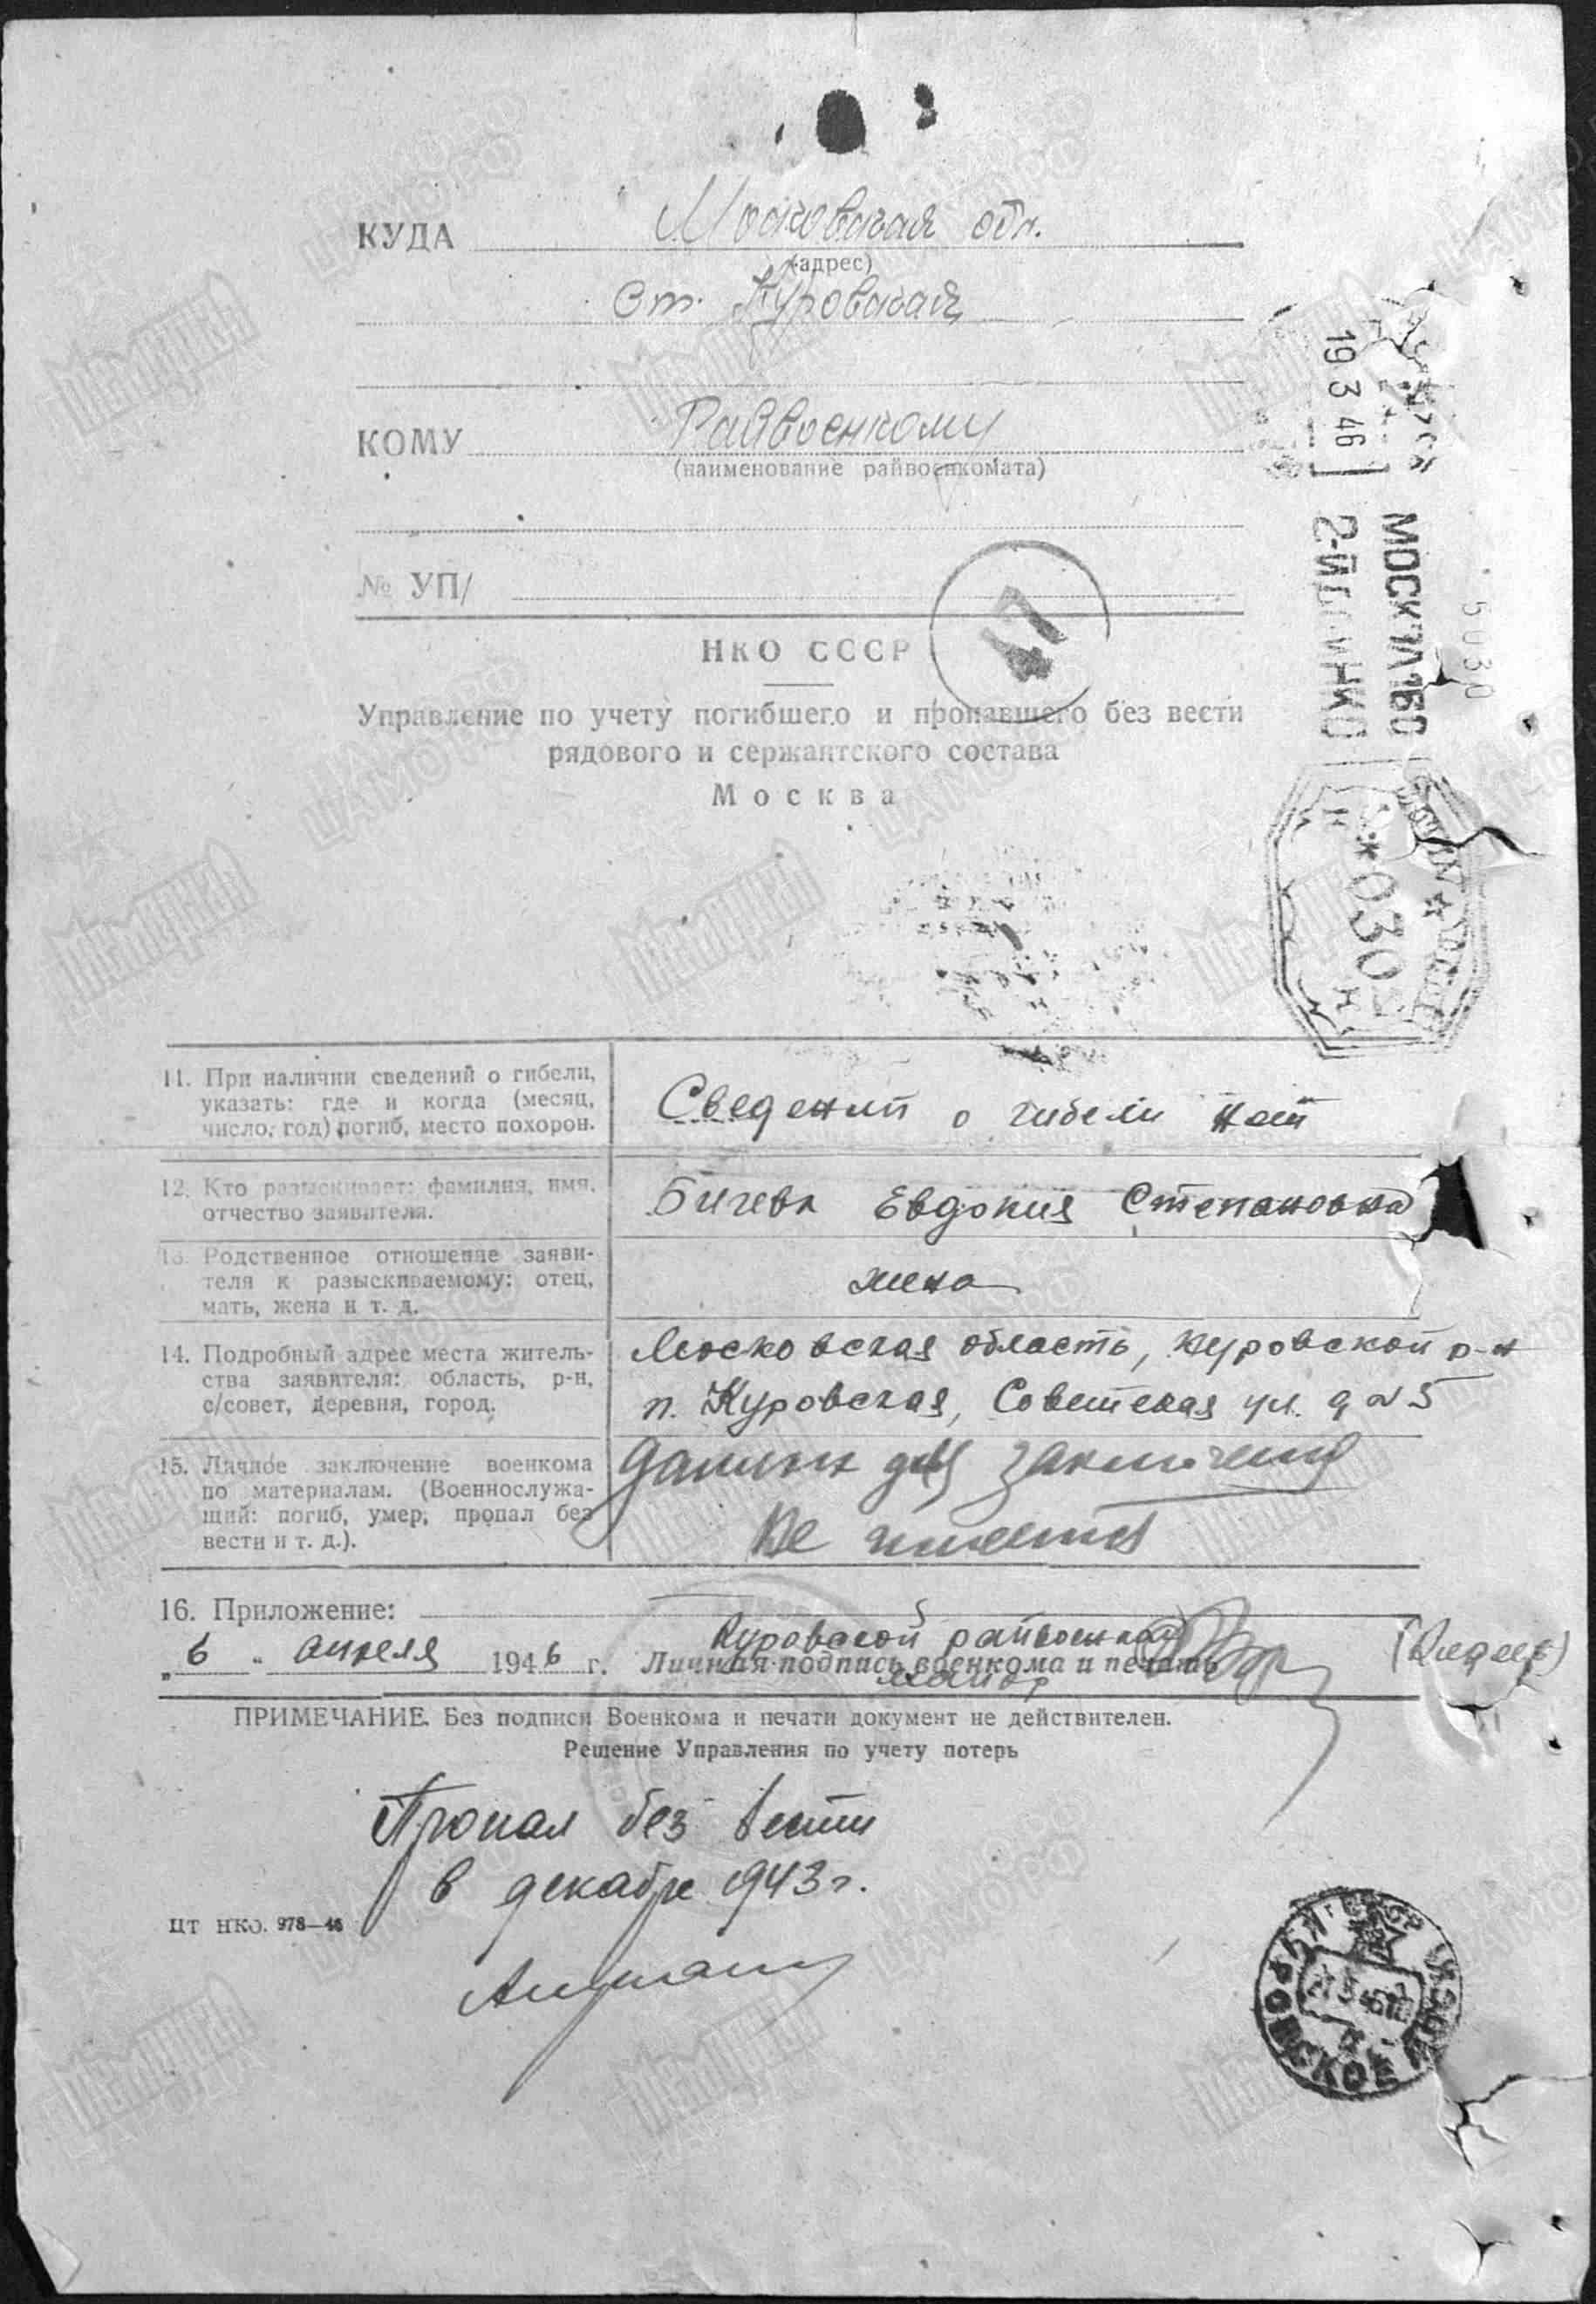 КУДА Московская обл.
(адрес)
ст. Куровская
КОМУ Райвоенкому
(наименование райвоенкомата)
№ УП/
47
НКО СССР
Управление по учету погибшего и пропавшего без вести
рядового и сержантского состава
Москва
19 3 46
МОСКВА
5030
030
11. При наличии сведений о гибели,
указать: где и когда (месяц,
число, год) погиб, место похорон.
Сведений о гибели нет
12. Кто разыскивает: фамилия, имя,
отчество заявителя.
Бичева Евдокия Степановна
13. Родственное отношение заяви-
теля к разыскиваемому: отец,
мать, жена и т. д.
жена
14. Подробный адрес места житель-
ства заявителя: область, р-н,
с/совет, деревня, город.
Московская область, Куровской р-н
п. Куровская, Советская ул. д № 5
15. Личное заключение военкома
по материалам. (Военнослужа-
щий: погиб, умер, пропал без
вести и т. д.).
Данных для заключения
не имеется
16. Приложение:
Куровской райвоенком
„ 6 " апреля 1946 г. Личная подпись военкома и печать
майор
ПРИМЕЧАНИЕ. Без подписи Военкома и печати документ не действителен.
Решение Управления по учету потерь
Пропал без вести
в декабре 1943 г.
ЦТ НКО. 978—46
МЕМОРИАЛ
ЦАМО.РФ